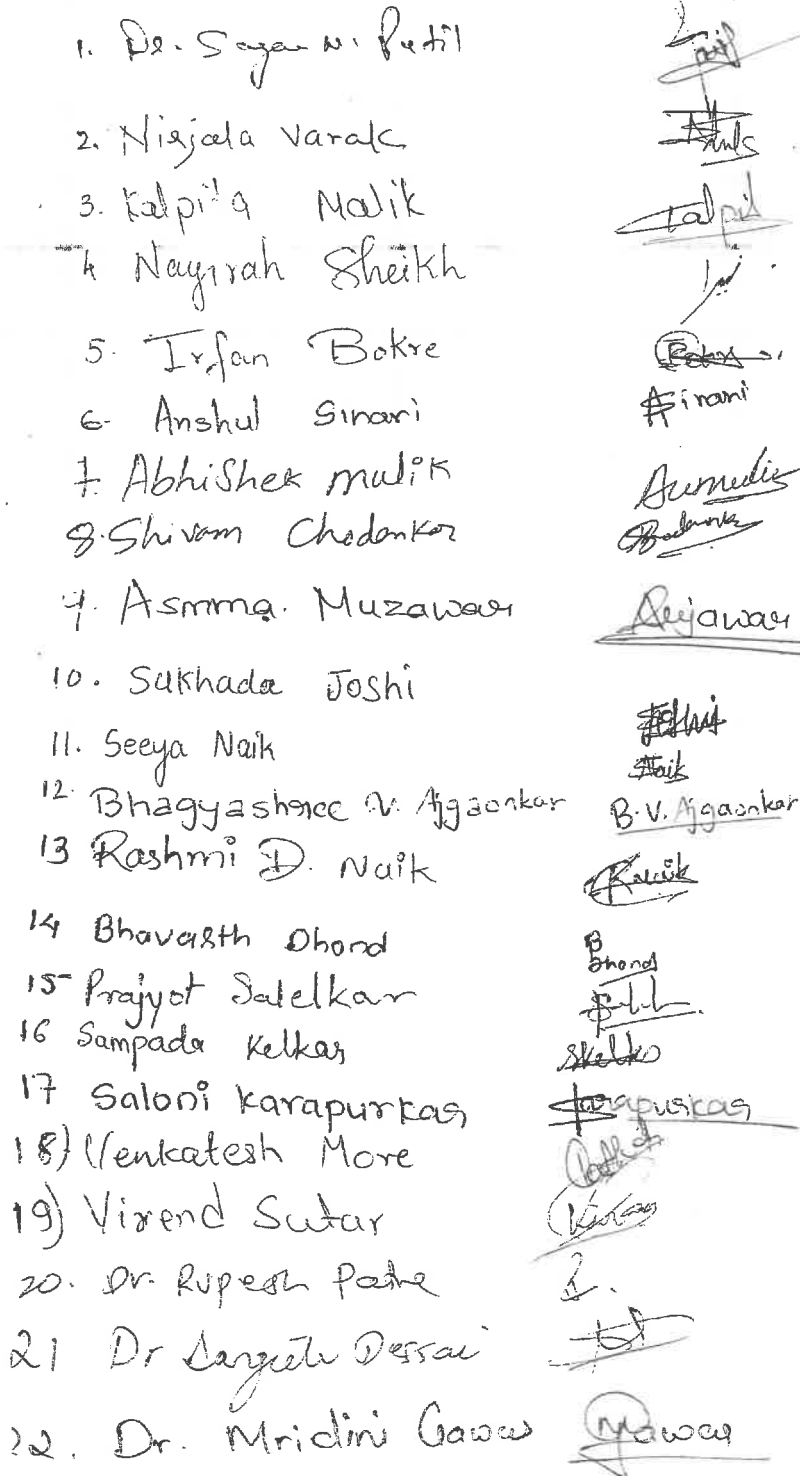 1. Dr. Sagar N. Patil
2. Nirjala Varak
3. Kalpita Malik Kalpit
4 Nayirah Sheikh
5. Irfan Bokre
6. Anshul Sinari Sinari
7. Abhishek Malik
8. Shivam Chodankar
9. Asmma. Muzawar
10. Sukhada Joshi
11. Seeya Naik Naik
12. Bhagyashree V. Ajgaonkar B.V. Ajgaonkar
13 Rashmi D. Naik
14 Bhavarth Dhond B Dhond
15 Prajyot Salelkar
16 Sampada Kelkar
17 Saloni Karapurkar Karapurkar
18) Venkatesh More
19) Virend Sutar
20. Dr. Rupesh
21 Dr Sangeeta Dessai
22. Dr. Mridini Gawas